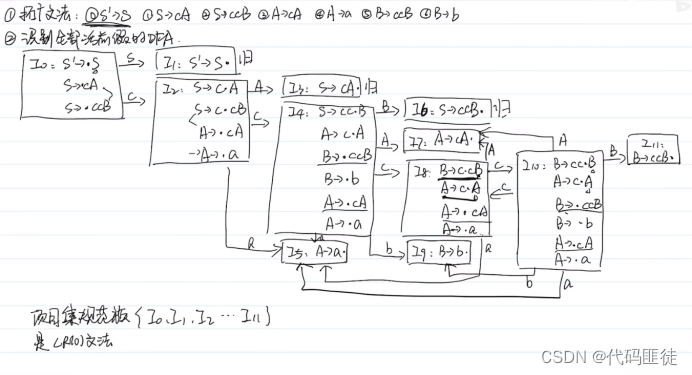 ① 拓广文法: ⓪S'→S ①S→cA ②S→ccB ③A→cA ④A→a ⑤B→ccB ⑥B→b
② 识别全部活前缀的DFA.
I0: S'→·S
S→·cA
S→·ccB
S
I1: S'→S· 归
C
I2: S→c·A
S→c·cB
A→·cA
→A→·a
A
I3: S→cA· 归
C
I4: S→cc·B
A→c·A
B→·ccB
B→·b
A→·cA
A→·a
B
I6: S→ccB· 归
A
I7: A→cA·
C
I8: B→c·cB
A→c·A
A→·cA
A→·a
A
C
C
I10: B→cc·B
A→c·A
B→·ccB
B→·b
A→·cA
A→·a
A
B
I11: B→ccB·
a
I5: A→a·
a
b
I9: B→b·
a
b
a
项目集规范族 {I0, I1, I2 ··· I11}
是LR(0)文法
CSDN @代码匪徒